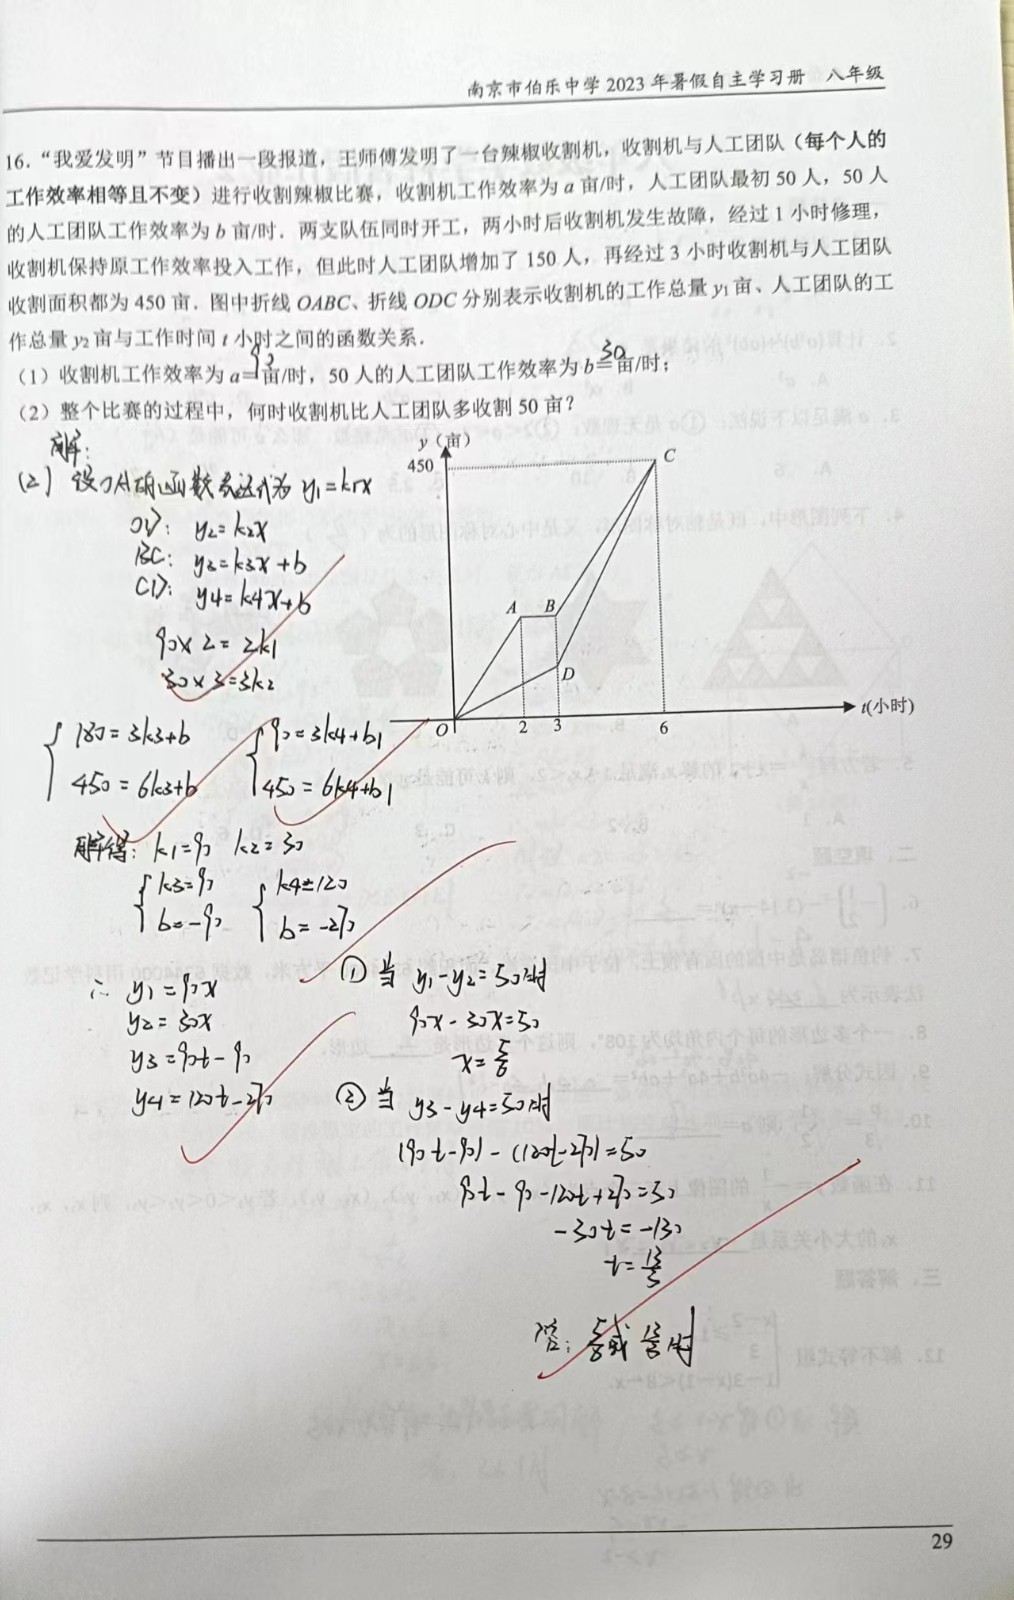 南京市伯乐中学 2023 年暑假自主学习册 八年级
16.“我爱发明”节目播出一段报道，王师傅发明了一台辣椒收割机，收割机与人工团队（每个人的
工作效率相等且不变）进行收割辣椒比赛，收割机工作效率为 a 亩/时，人工团队最初 50 人，50 人
的人工团队工作效率为 b 亩/时．两支队伍同时开工，两小时后收割机发生故障，经过 1 小时修理，
收割机保持原工作效率投入工作，但此时人工团队增加了 150 人，再经过 3 小时收割机与人工团队
收割面积都为 450 亩．图中折线 OABC、折线 ODC 分别表示收割机的工作总量 y₁ 亩、人工团队的工
作总量 y₂ 亩与工作时间 t 小时之间的函数关系．
（1）收割机工作效率为 a=90亩/时，50 人的人工团队工作效率为 b=30亩/时；
（2）整个比赛的过程中，何时收割机比人工团队多收割 50 亩？
y（亩）
450
C
A
B
D
O
2
3
6
t(小时)
解：
(2) 设OA的函数表达式为 y₁=k₁x
OD: y₂=k₂x
BC: y₃=k₃x+b
CD: y₄=k₄x+b
90×2=2k₁
30×3=3k₂
180=3k₃+b 90=3k₄+b₁
450=6k₃+b 450=6k₄+b₁
解得: k₁=90 k₂=30
k₃=90 k₄=120
b=-90 b=-270
∴ y₁=90x
y₂=30x
y₃=90t-90
y₄=120t-270
① 当 y₁-y₂=50时
90x-30x=50
x=5/6
② 当 y₃-y₄=50时
(90t-90)-(120t-270)=50
90t-90-120t+270=50
-30t=-130
t=13/3
答：5/6或 13/3 时
29